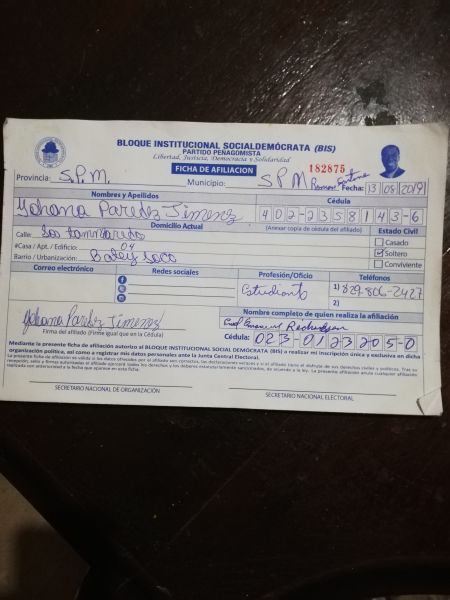 BLOQUE INSTITUCIONAL SOCIALDEMÓCRATA (BIS)
PARTIDO PEÑAGOMISTA
Libertad, Justicia, Democracia y Solidaridad
FICHA DE AFILIACION 182875
Provincia: S.P.M. Municipio: S P M Fecha: 13 08 2019
Nombres y Apellidos Cédula
Yohana Paredez Jimenez 402-2358143-6
Domicilio Actual (Anexar copia de cédula del afiliado) Estado Civil
Calle: Los tammarindo Casado
#Casa / Apt. / Edificio: 04 Soltero
Barrio / Urbanización: Batey Soco Conviviente
Correo electrónico Redes sociales Profesión/Oficio Teléfonos
Estudiante 1) 829-806-2427
2)
Yohana Paredez Jimenez Nombre completo de quien realiza la afiliación
Firma del afiliado (Firme igual que en la Cédula)
Cédula: 023-0123205-0
Mediante la presente ficha de afiliación autorizo al BLOQUE INSTITUCIONAL SOCIAL DEMÓCRATA (BIS) a realizar mi inscripción única y exclusiva en dicha
organización política, así como a registrar mis datos personales ante la Junta Central Electoral.
SECRETARIO NACIONAL DE ORGANIZACIÓN SECRETARIO NACIONAL ELECTORAL